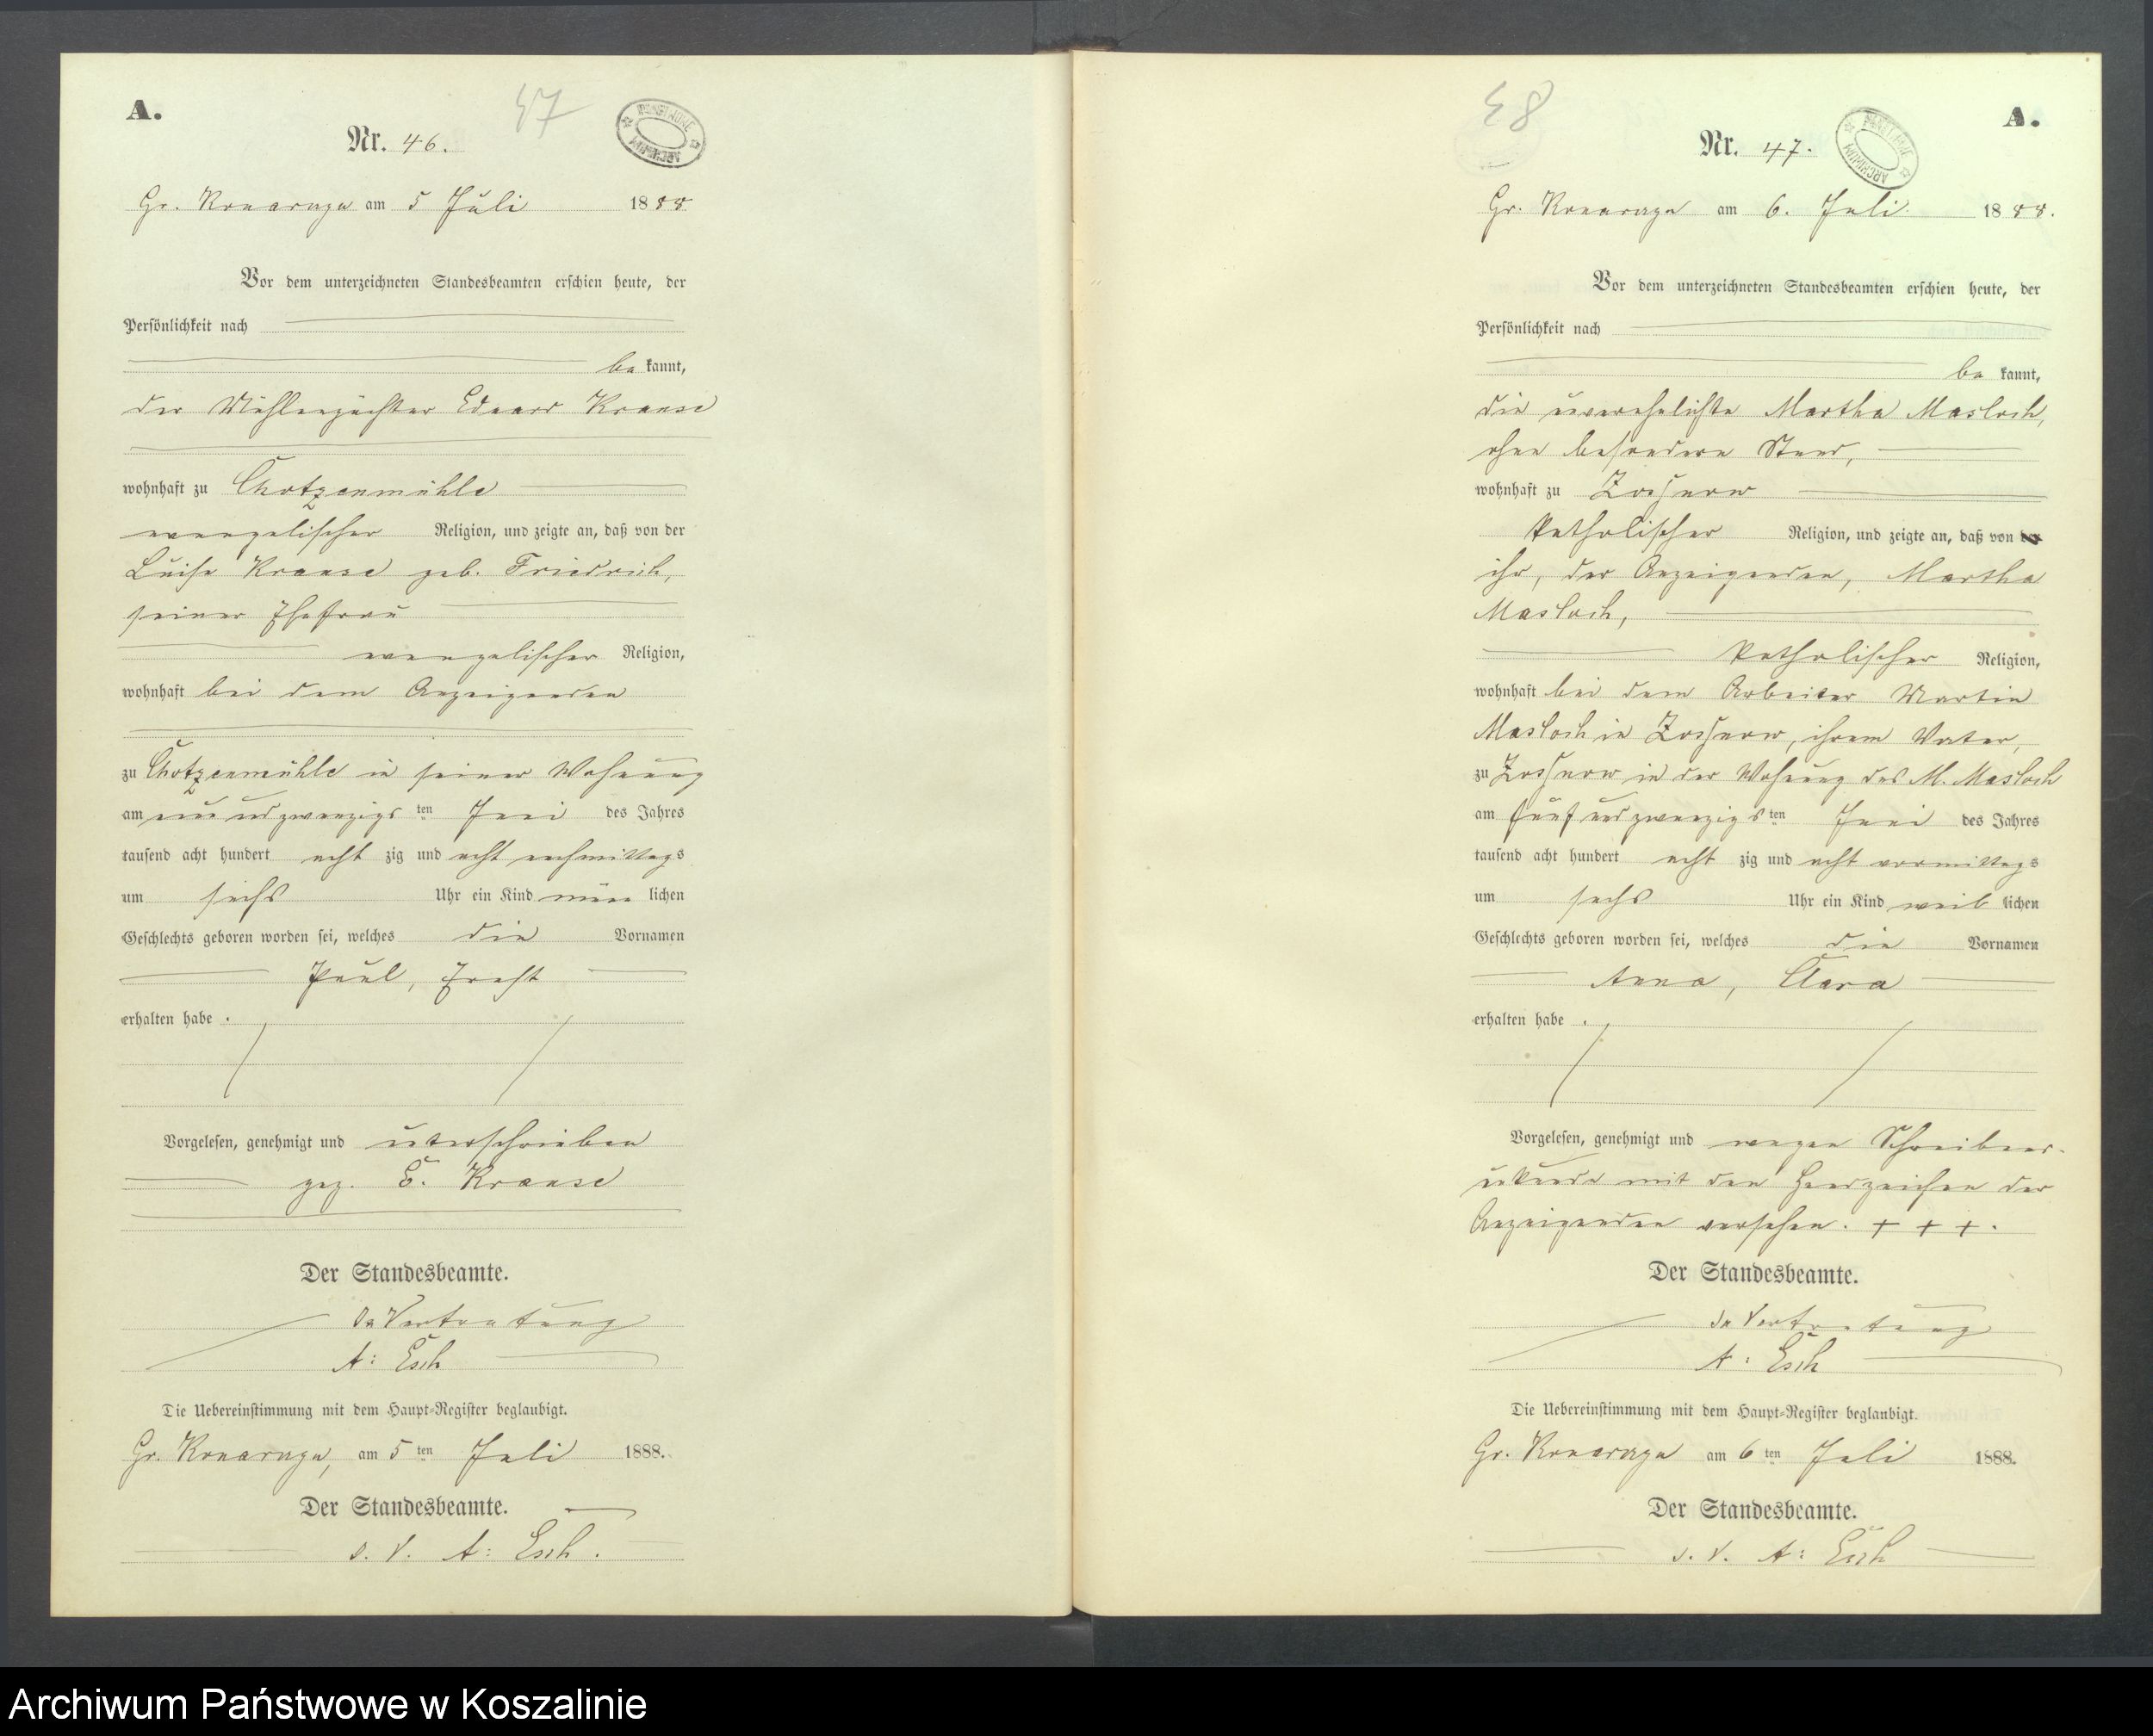 A.
47
Nr. 46.
ARCHIWUM PAŃSTWOWE
Gr. Konarczyn am 5 Juli 1888
Vor dem unterzeichneten Standesbeamten erschien heute, der
Persönlichkeit nach
be kannt,
der Mühlenpächter Eduard Krause
wohnhaft zu Chotzenmühle
evangelischer Religion, und zeigte an, daß von der
Luise Krause geb. Friedrich,
seiner Ehefrau
evangelischer Religion,
wohnhaft bei dem Anzeigenden
zu Chotzenmühle in seiner Wohnung
am und zwanzigs ten Juni des Jahres
tausend acht hundert acht zig und acht nachmittags
um sechs Uhr ein Kind männ lichen
Geschlechts geboren worden sei, welches die Vornamen
Paul, Ernst
erhalten habe.
Vorgelesen, genehmigt und unterschrieben
gez. E. Krause
Der Standesbeamte.
In Vertretung
A: Esch
Die Uebereinstimmung mit dem Haupt-Register beglaubigt.
Gr. Konarczyn, am 5 ten Juli 1888.
Der Standesbeamte.
I. V. A: Esch.
48
A.
Nr. 47.
ARCHIWUM PAŃSTWOWE
Gr. Konarczyn am 6. Juli 1888.
Vor dem unterzeichneten Standesbeamten erschien heute, der
Persönlichkeit nach
be kannt,
die unverehelichte Martha Masloch,
ohne besonderen Stand,
wohnhaft zu Zossnow
katholischer Religion, und zeigte an, daß von der
ihr, der Anzeigenden, Martha
Masloch,
katholischer Religion,
wohnhaft bei dem Arbeiter Martin
Masloch in Zossnow, ihrem Vater,
zu Zossnow in der Wohnung des M. Masloch
am fünf und zwanzigs ten Juni des Jahres
tausend acht hundert acht zig und acht vormittags
um sechs Uhr ein Kind weib lichen
Geschlechts geboren worden sei, welches die Vornamen
Anna, Clara
erhalten habe.
Vorgelesen, genehmigt und wegen Schreibens-
unkunde mit den Handzeichen der
Anzeigenden versehen. + + +.
Der Standesbeamte.
In Vertretung
A: Esch
Die Uebereinstimmung mit dem Haupt-Register beglaubigt.
Gr. Konarczyn am 6 ten Juli 1888.
Der Standesbeamte.
I. V. A: Esch
Archiwum Państwowe w Koszalinie